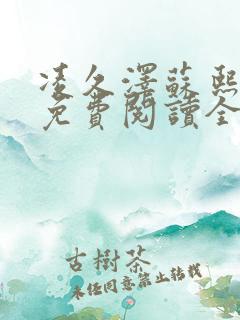 凌久澤蘇熙
免費閱讀全
古樹茶
未經同意禁止轉載